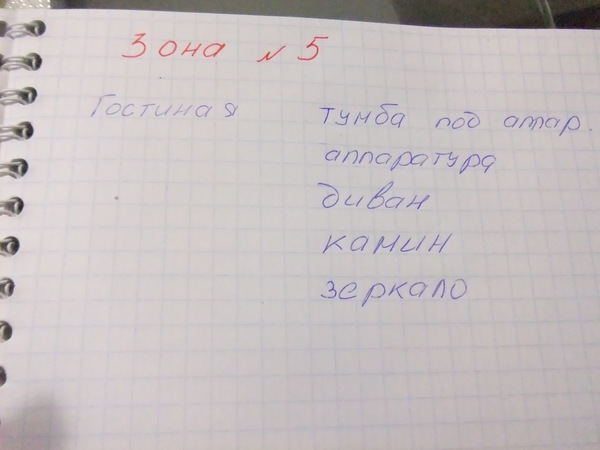 Зона № 5
Гостиная тумба под аппар.
аппаратура
диван
камин
зеркало